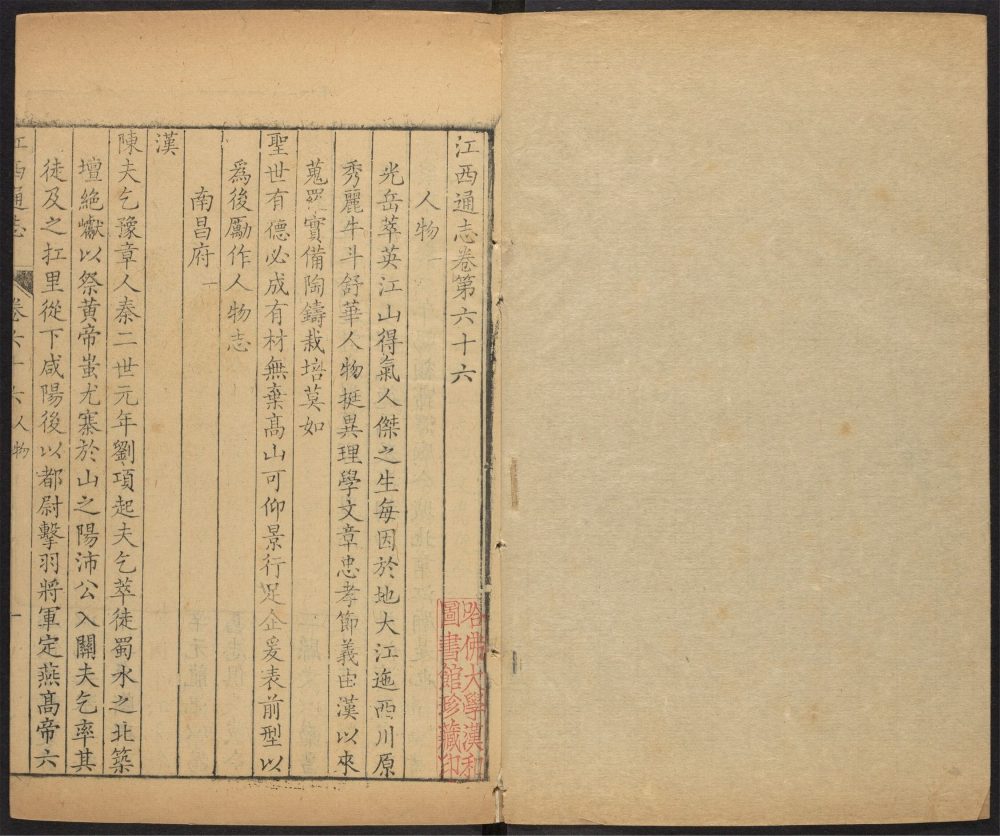 江西通志卷第六十六
人物一
光岳萃英江山得氣人傑之生每因於地大江迤西川原
秀麗牛斗舒華人物挺異理學文章忠孝節義由漢以來
蒐羅實備陶鑄栽培莫如
聖世有德必成有材無棄髙山可仰景行足企爰表前型以
爲後勵作人物志
南昌府一
漢
陳夫乞豫章人秦二世元年劉項起夫乞萃徒蜀水之北築
壇絶巘以祭黄帝蚩尤寨於山之陽沛公入關夫乞率其
徒及之扛里從下咸陽後以都尉擊羽將軍定燕髙帝六
江西通志 卷六十六人物 一
哈佛大學漢和
圖書館珍藏印